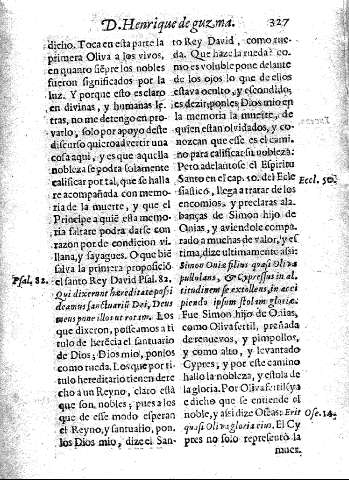 D. Henrique de guzma.
327
dicho. Toca en esta parte la
primera Oliva a los vivos,
en quanto siẽpre los nobles
fueron significados por la
luz. Y porque esto es claro
en divinas, y humanas le
tras, no me detengo en pro-
varlo, solo por apoyo deste
discurso quiero advertir una
cosa aqui, y es que aquella
nobleza se podra solamente
calificar por tal, que se halla
re acompañada con memo-
ria de la muerte, y que el
Principe a quiẽ esta memo-
ria faltare podra darse con
razon por de condicion vi-
llana, y sayagues. O que biẽ
salva la primera proposiciõ
el santo Rey David Psal. 82.
Psal. 82.
Qui dixerunt hæreditate possi
deamus sanctuariũ Dei, Deus
meus pone illos ut rotam. Los
que dixeron, posseamos a ti
tulo de herẽcia el santuario
de Dios; Dios mio, ponlos
como rueda. Los que por ti-
tulo hereditario tienen dere
cho a un Reyno, claro està
que son, nobles; pues a los
que de esse modo esperan
el Reyno, y santuario, pon.
los Dios mio, dize el San-
to Rey David, como rue-
da. Què haze la rueda? co-
mo es voluble pone delante
de los ojos lo que de ellos
estava oculto, y escondido,
es dezir ponles Dios mio en
la memoria la muerte, de
quien estan olvidados, y co-
nozcan que esse es el cami-
no para calificar su nobleza:
Pero adelantose el Espiritu
Santo en el cap. 50. del Ecle
Eccl. 50.
siastico, llega a tratar de los
encomios, y preclaras ala-
banças de Simon hijo de
Onias, y aviendole compa-
rado a muchas de valor, y es
tima, dize ultimamente assi:
Simon Oniæ filius quasi Oliva
pullulans, & Cypressus in al-
titudinem se extollens, in acci
piendo ipsum stolam gloriæ.
Fue Simon hijo de Onias,
como Oliva fertil, preñada
de renuevos, y pimpollos,
y como alto, y levantado
Cypres, y por este camino
hallo la nobleza, y estola de
la gloria. Por Oliva fertil ya
e dicho que se entiende el
noble, y asi dize Oseas: Erit
Ose. 14.
quasi Oliva gloria eius. El Cy
pres no solo representò la
muer.